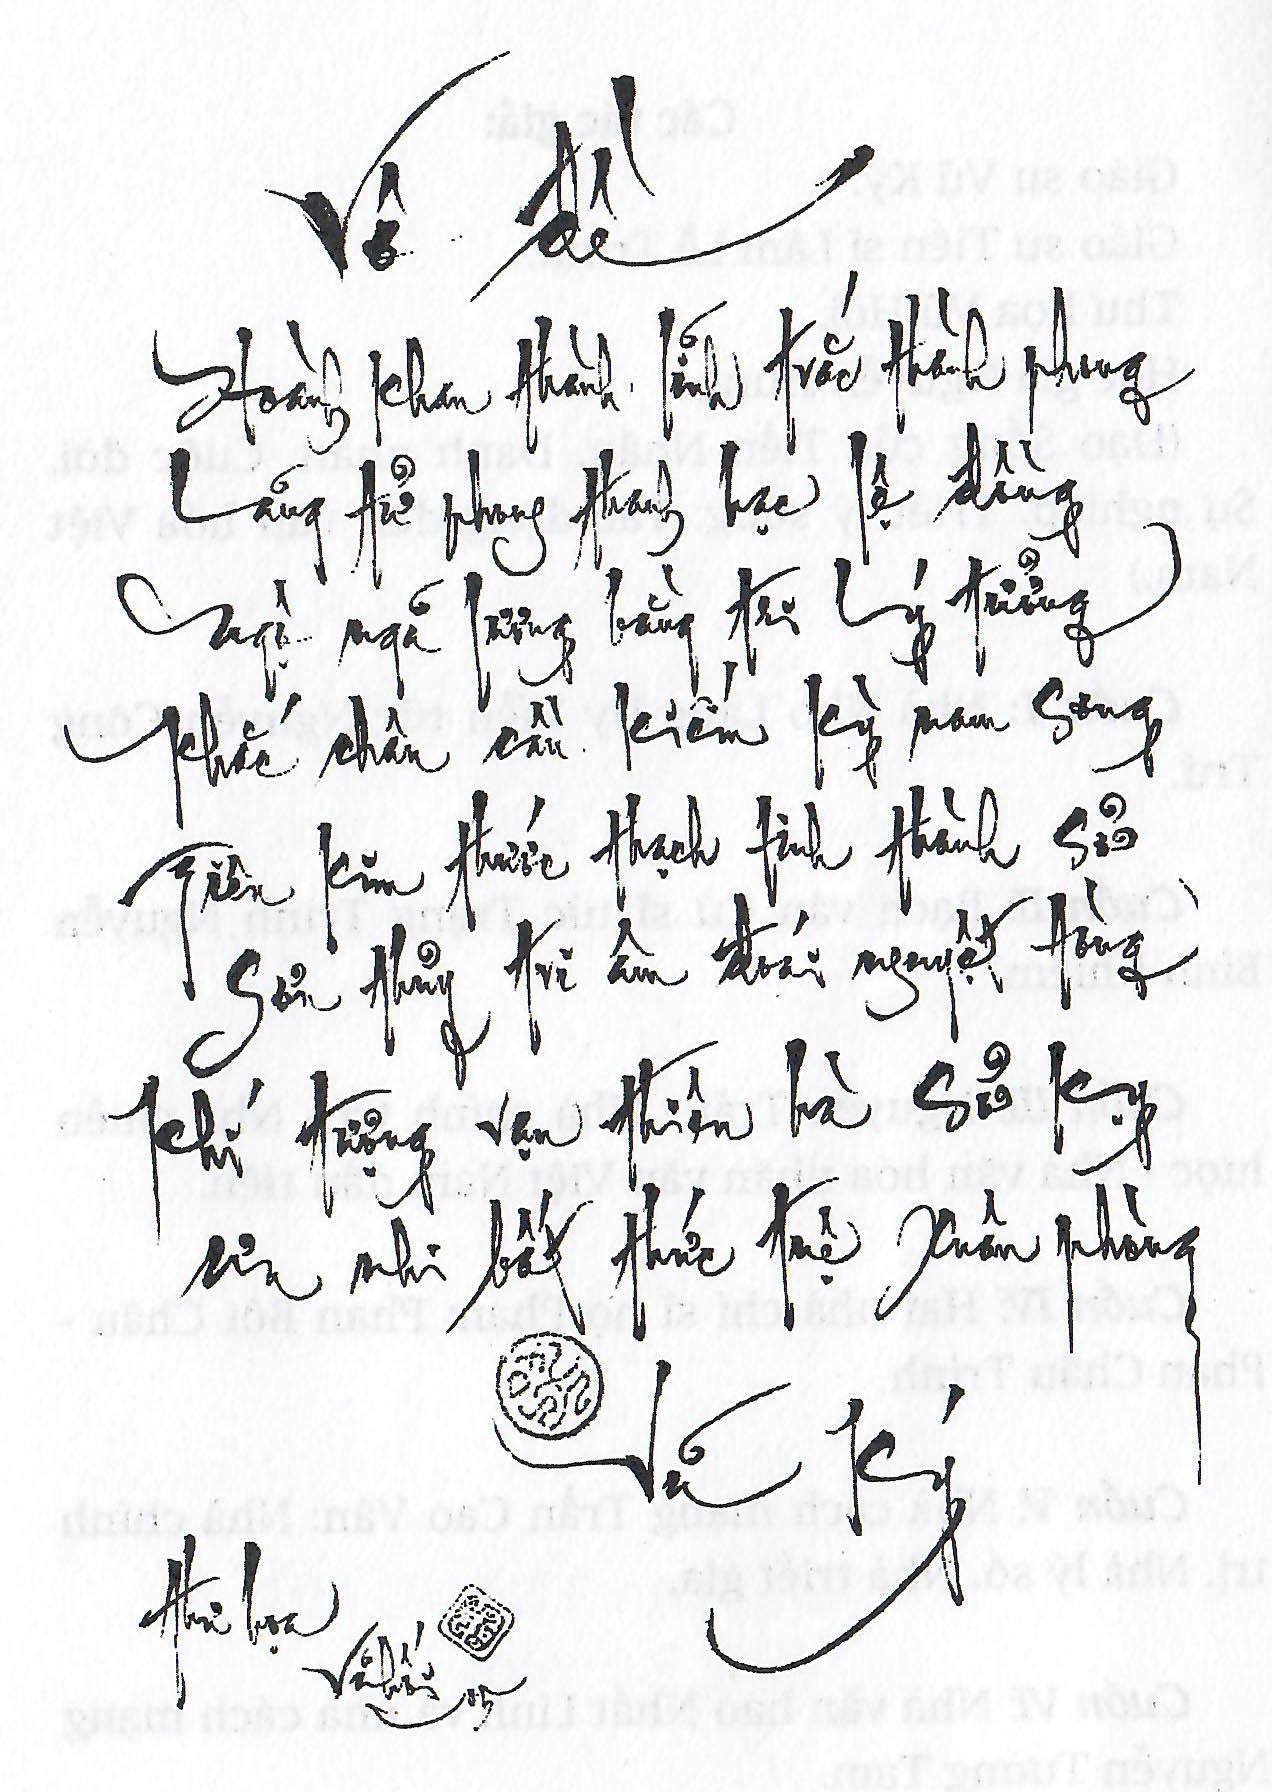 Vô đề
Hoành khan thành lĩnh trắc thành phong
Lãng tử phong thanh hạc lệ đồng
Ngộ ngã lương bằng tri lý tưởng
Khắc chân cần kiếm kỳ nam song
Tiên kim thước thạch tình thành sở
Sơn thủy tri âm đoái nguyệt tòng
Khí tượng vạn thiên hà sở kỵ
Ưu nhi bất thức tuệ xuân phòng
Vũ Ký
Thư họa
Vũ Hối